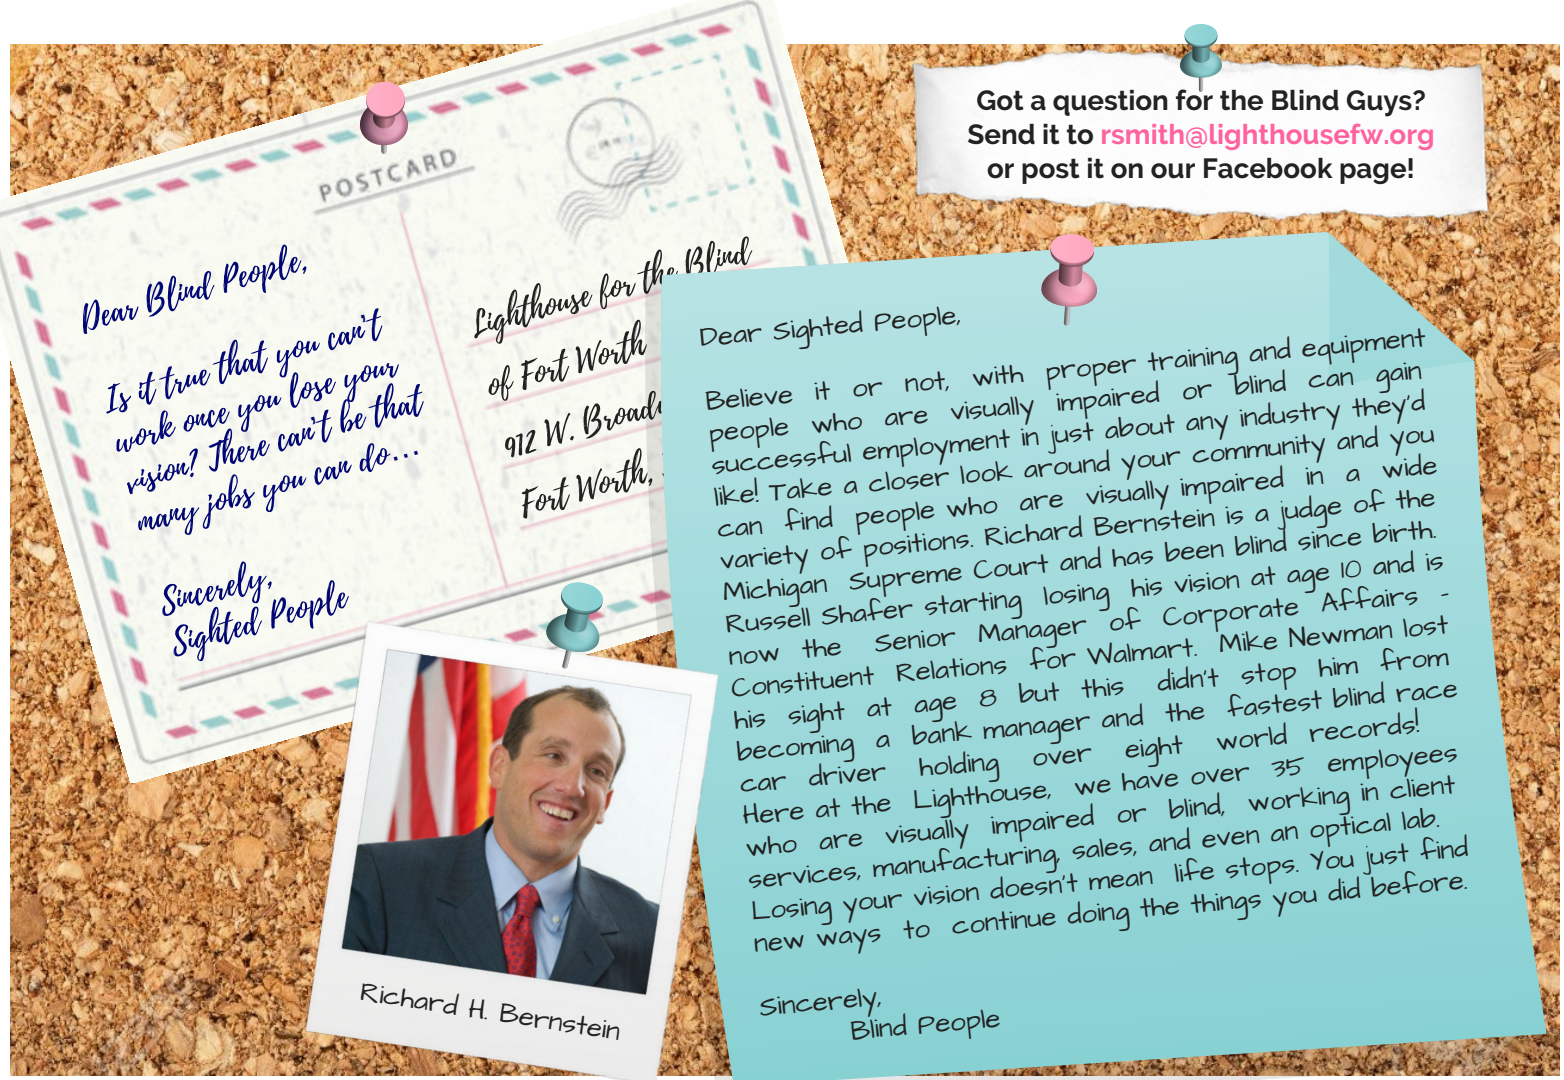 POSTCARD
Dear Blind People,
Is it true that you can't
work once you lose your
vision? There can't be that
many jobs you can do...
Sincerely,
Sighted People
Lighthouse for the Blind
of Fort Worth
912 W.
Fort Worth,
Got a question for the Blind Guys?
Send it to rsmith@lighthousefw.org
or post it on our Facebook page!
Dear Sighted People,
Believe it or not, with proper training and equipment
people who are visually impaired or blind can gain
successful employment in just about any industry they'd
like! Take a closer look around your community and you
can find people who are visually impaired in a wide
variety of positions. Richard Bernstein is a judge of the
Michigan Supreme Court and has been blind since birth.
Russell Shafer starting losing his vision at age 10 and is
now the Senior Manager of Corporate Affairs -
Constituent Relations for Walmart. Mike Newman lost
his sight at age 8 but this didn't stop him from
becoming a bank manager and the fastest blind race
car driver holding over eight world records!
Here at the Lighthouse, we have over 35 employees
who are visually impaired or blind, working in client
services, manufacturing, sales, and even an optical lab.
Losing your vision doesn't mean life stops. You just find
new ways to continue doing the things you did before.
Sincerely,
Blind People
Richard H. Bernstein